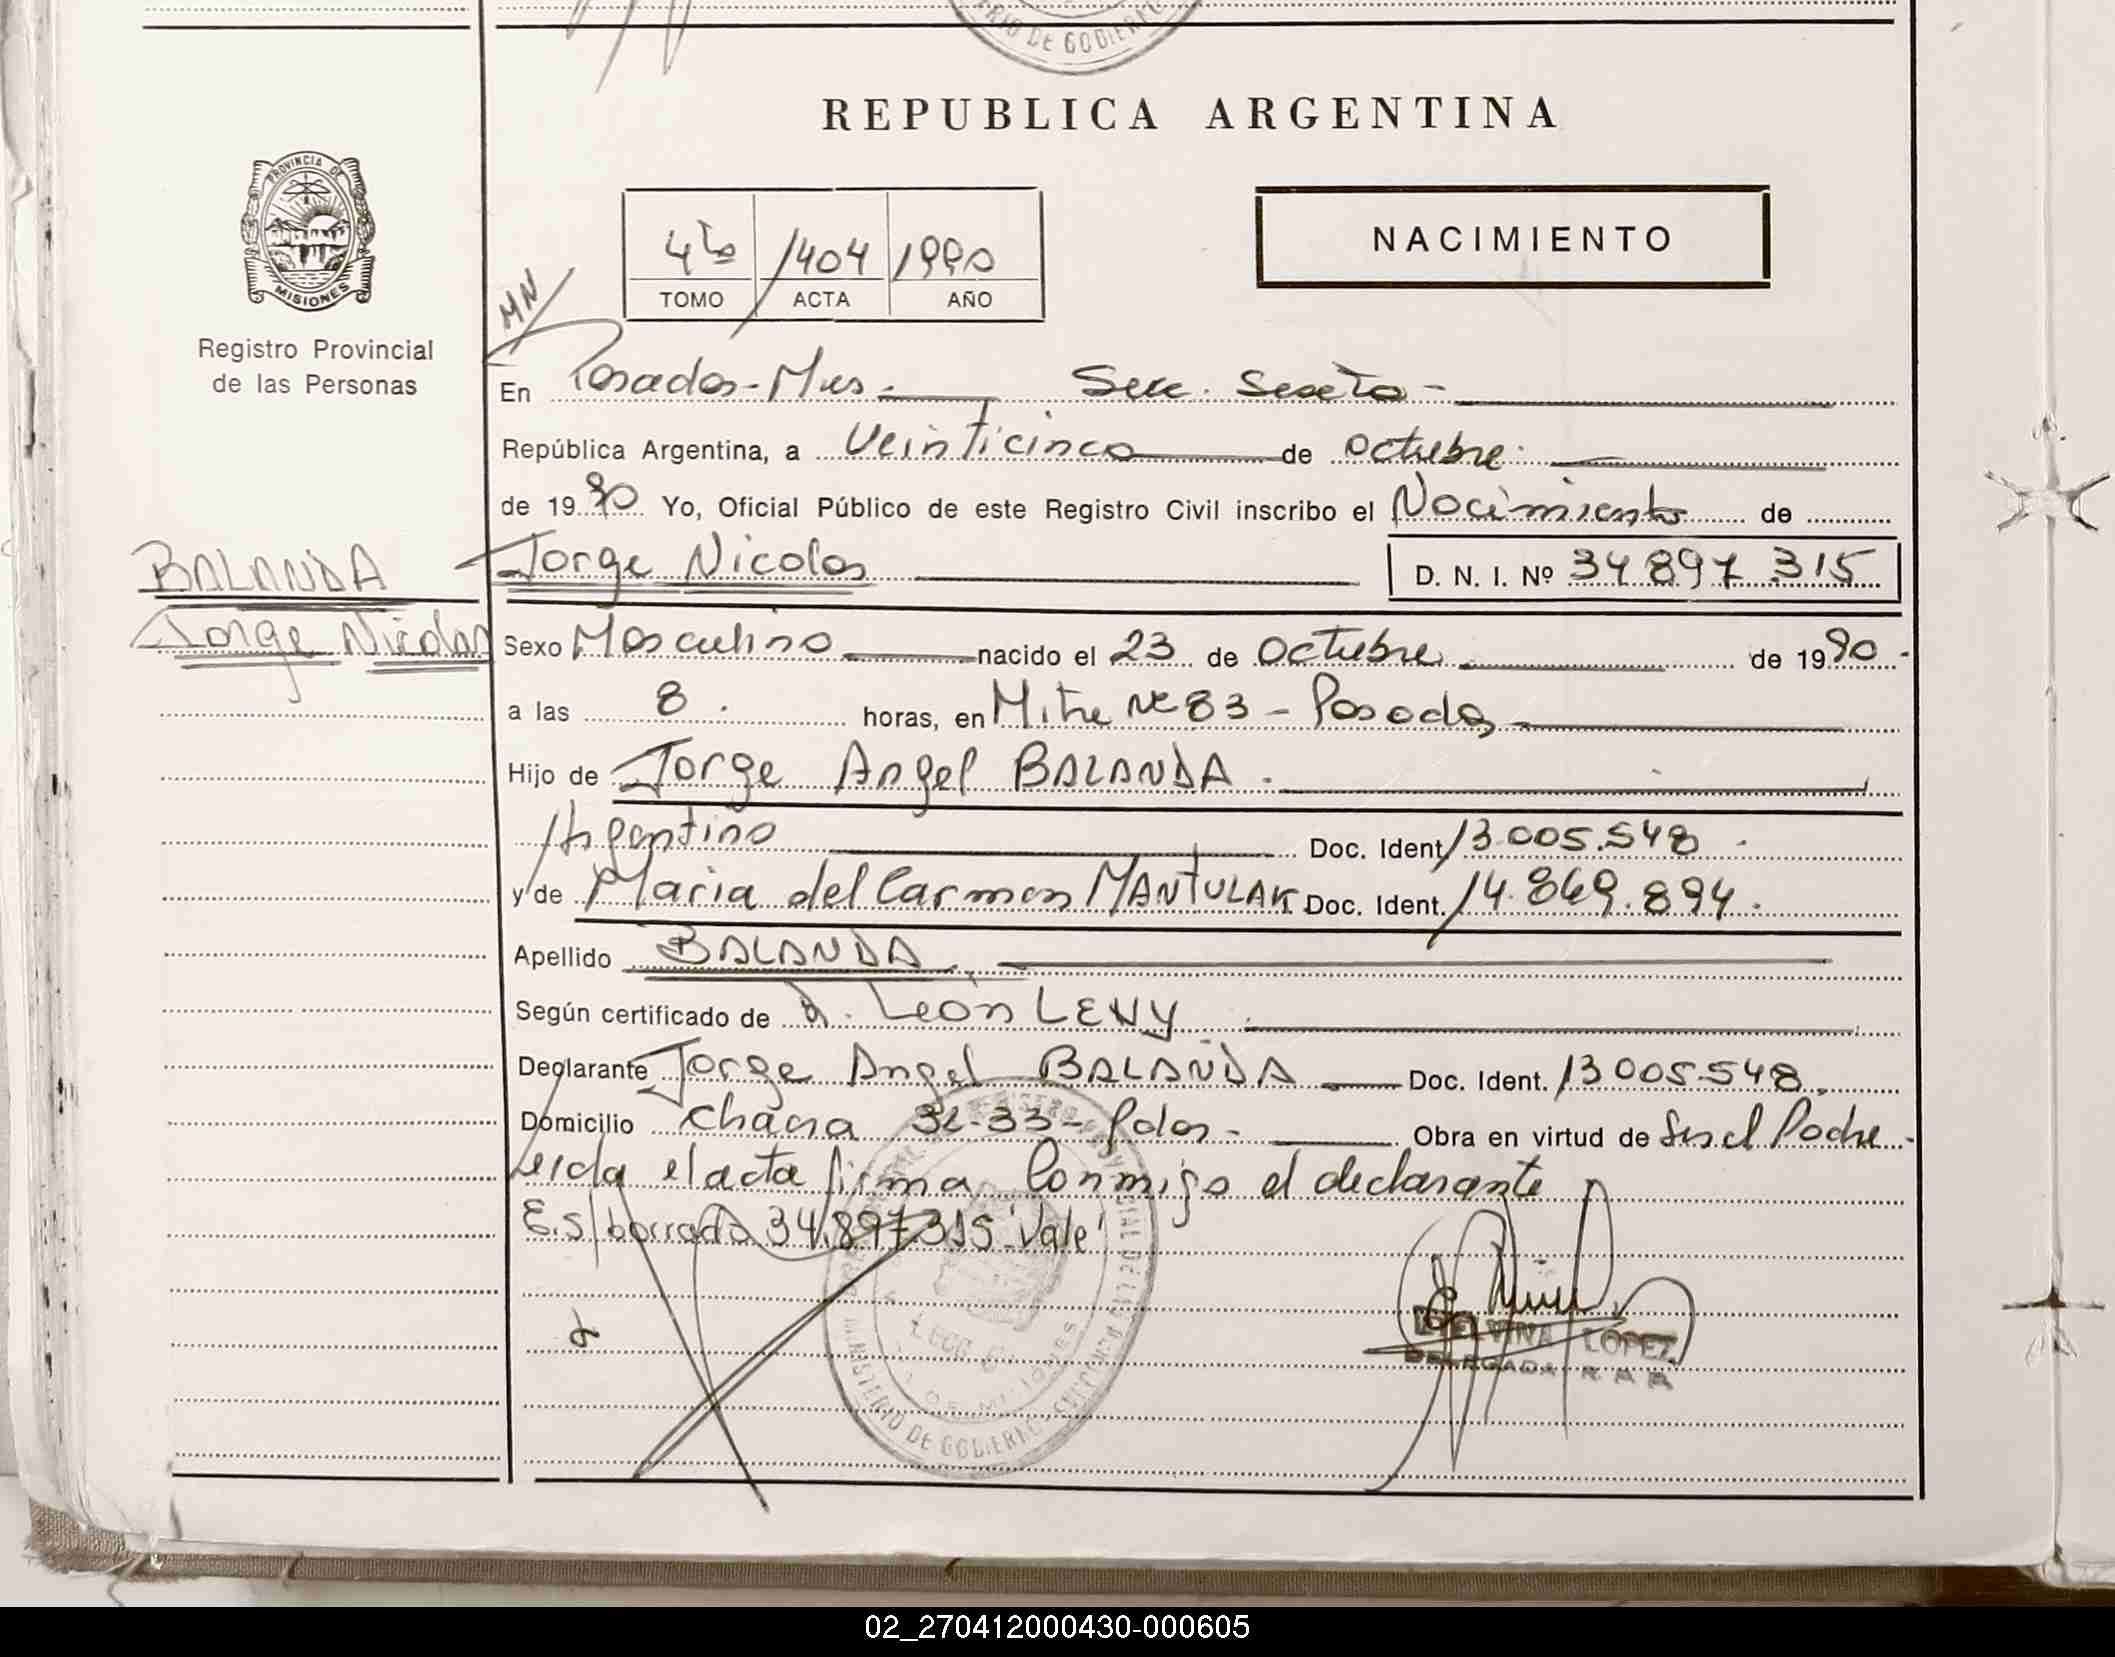 RIO DE GOBIERN
REPUBLICA ARGENTINA
PROVINCIA DE
MISIONES
Registro Provincial
de las Personas
4to 1404 1990
TOMO ACTA AÑO
NACIMIENTO
MN
En Posadas-Mnes. Secc. Sexta-
República Argentina, a Veinticinco de octubre.
de 1990 Yo, Oficial Público de este Registro Civil inscribo el Nacimiento de
BALANDA Jorge Nicolas D. N. I. Nº 34 897 315
Jorge Nicolas Sexo Masculino nacido el 23 de Octubre de 1990.
a las 8. horas, en Mitre Nº 83 - Posadas
Hijo de Jorge Angel BALANDA.
Argentino Doc. Ident. 13.005.548.
y de Maria del Carmen MANTULAK Doc. Ident. 14.869.894.
Apellido BALANDA.
Según certificado de d. León LEVY
Declarante Jorge Angel BALANDA Doc. Ident. 13005548.
Domicilio Chacra 32-33- Pdas- Obra en virtud de Ser el Padre.
Leida el acta firma Conmigo el declarante
E.S/borrado 34.897315 'Vale'
LOPEZ
DELEGADA R
MINISTERIO DE GOBIERNO
02_270412000430-000605